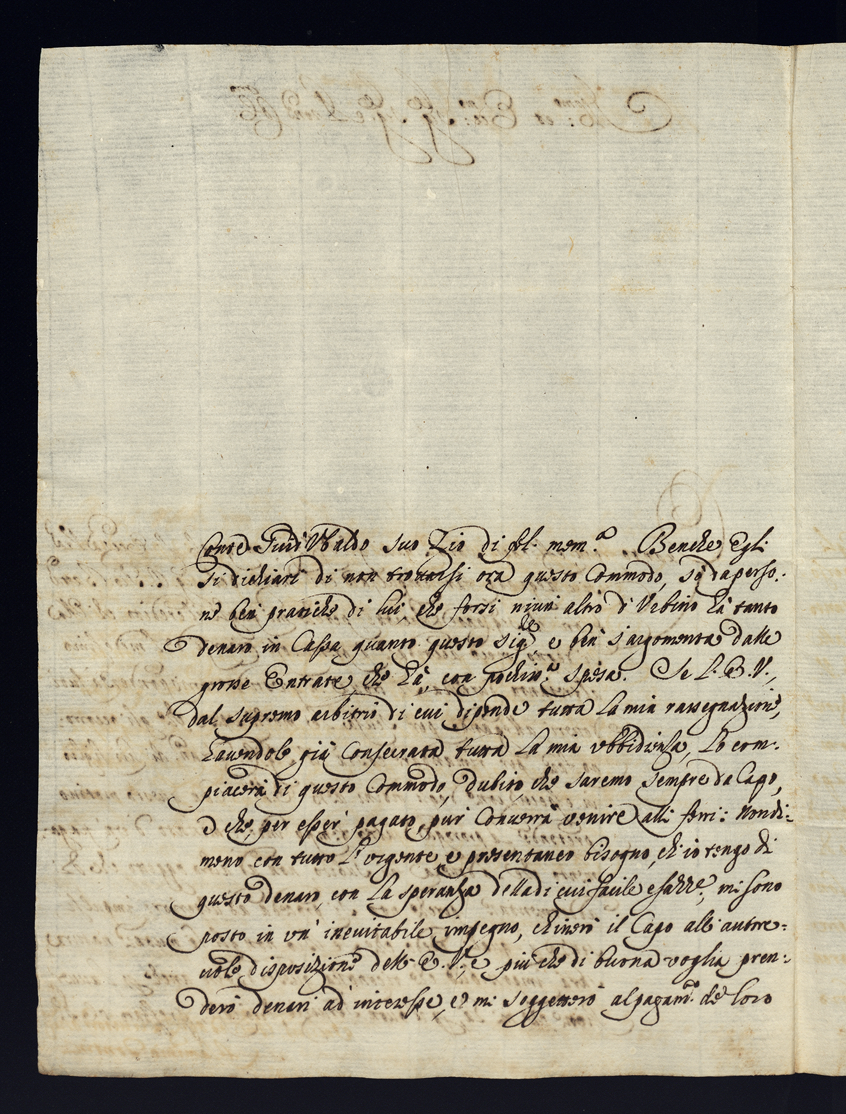 Conte Guid'Vbaldo suo Zio di fel: mem.ª Benche Egli
si dichiari di non trovarsi ora questo Commodo, sò da perso:
ne ben pratiche di lui, che forsi niun altro d'Vrbino hà tanto
denaro in Cassa quanto questo Sig.re, e ben s'argomenta dalle
grosse Entrate, che hà, con pochiss.ª spesa. Se l'E. V.,
dal supremo arbitrio di cui dipende tutta la mia rassegnazione,
havendole già consecrata tutta la mia vbbidienza, lo com:
piacerà di questo Commodo, dubito che saremo sempre da Capo,
e che, per esser pagato, pur converrà venire alli ferri: Nondi:
meno con tutto l'vrgente e presentaneo bisogno, ch'io tengo di
questo denaro, con la speranza della di cui facile esazz.e, mi sono
posto in vn' inevitabile impegno, chinerò il Capo alle autore:
uole disposizioni dell'E. V., e più che di buona voglia pren:
derò denari ad interesse, e mi soggetterò al pagam.to de loro